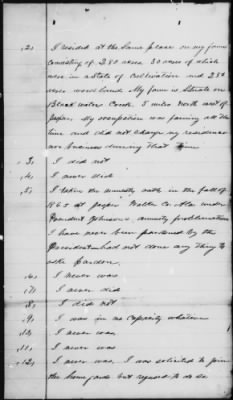 2. I resided at the same place on my farm
consisting of 280 acres 30 acres of which
were in a state of cultivation and 250
acres wood land. My farm is situate on
Black water Creek. 5 miles north west of
Jasper. My occupation was farming all the
time and did not change my residence
nor business during that time
3. I did not
4. I never did
5. I taken the amnesty oath in the fall of
1865 at Jasper Walker Co. Ala under
President Johnson's amnesty proclamation
I have never been pardoned by the
President had not done any thing to
ask Pardon.
6. I never was
7. I never did
8. I did not
9. I was in no capacity whatever
10. I never was
11. I never was
12. I never was. I was solicited to join
the home guards but refused to do so